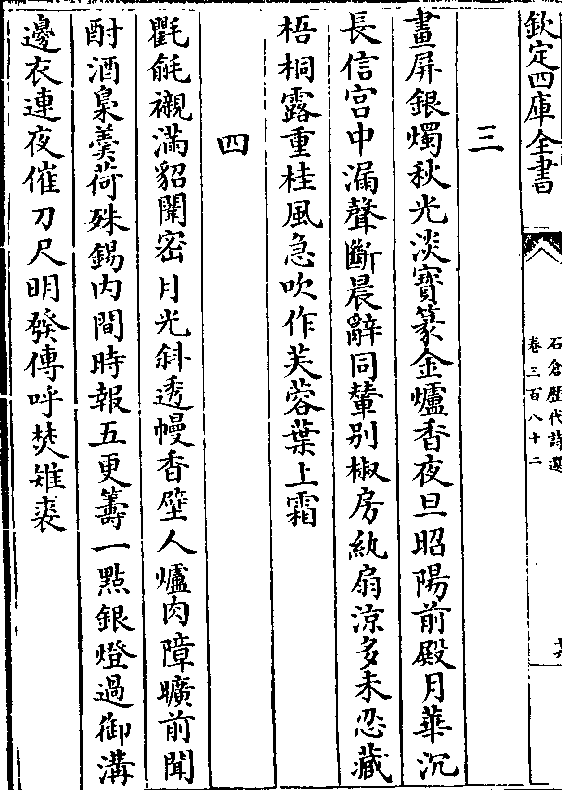 欽定四庫全書
石倉歷代詩選
卷三百八十二
三
畫屏銀燭秋光淡寶篆金爐香夜旦昭陽前殿月華沉
長信宮中漏聲斷晨辭同輦别椒房紈扇涼多未忍藏
梧桐露重桂風急吹作芙蓉葉上霜
四
氍毹襯滿貂閣密月光斜透幔香壁人爐肉障曠前聞
酎酒梟羮荷殊錫内間時報五更籌一點銀燈過御溝
邊衣連夜催刀尺明發傳呼焚雉裘